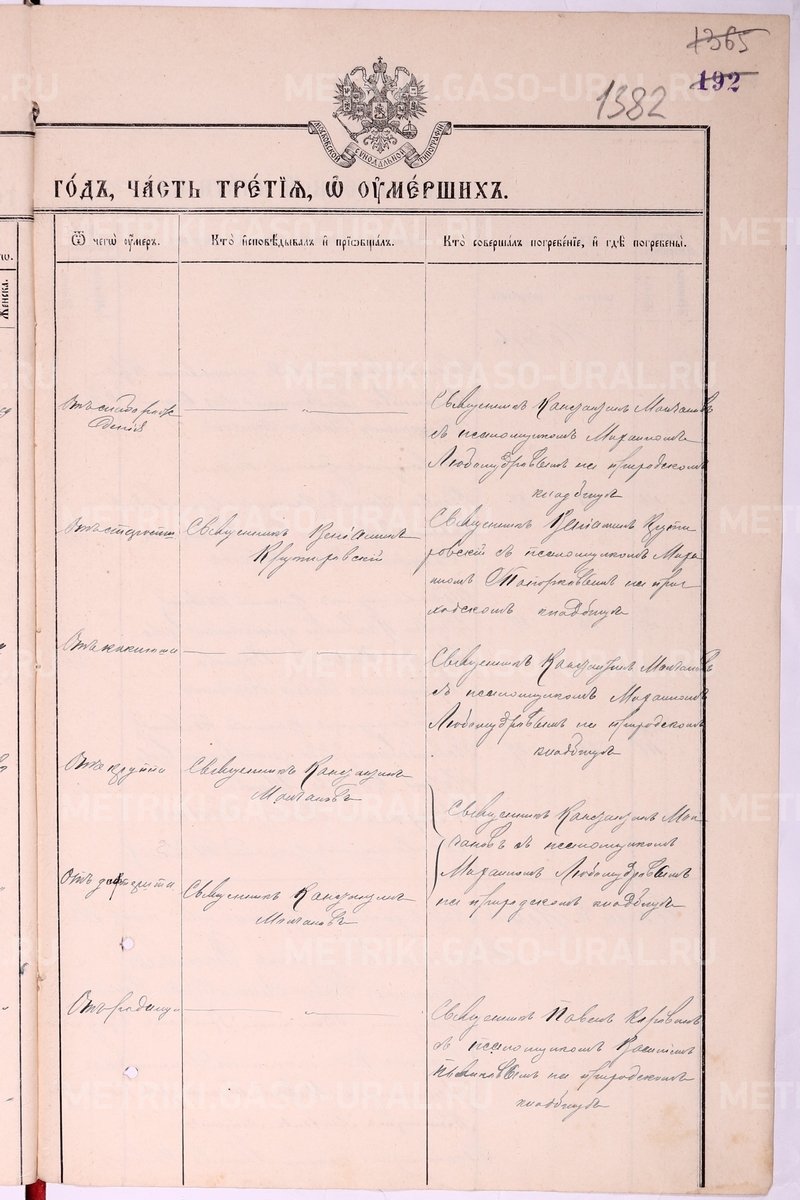 1365
192
1382
МОСКОВСКОЙ СѴНОДАЛЬНОЙ ТИПОГРАФІИ
ГО́ДЪ, ЧА́СТЬ ТРЕ́ТІЯ, Ѽ ОУ҆МЕ́РШИХЪ.
Ѿ чегѡ̀ оу҆́меръ.
Кто̀ и҆сповѣ́дывалъ и҆ прїѡбща́лъ.
Кто̀ соверша́лъ погребе́нїе, и҆ гдѣ̀ погребены̀.
Женска.
Отъ слабо рож
денія
Священникъ Константинъ Молчановъ
съ псаломщикомъ Михаиломъ
Любомудровымъ на приходскомъ
кладбищѣ
Отъ старости
Священникъ Веніаминъ
Крутировскій
Священникъ Веніаминъ Крути
ровскій съ псаломщикомъ Миха
иломъ Топорковымъ на при
ходскомъ кладбищѣ
Отъ
Священникъ Константинъ Молчановъ
съ псаломщикомъ Михаиломъ
Любомудровымъ на приходскомъ
кладбищѣ
Отъ крупа
Священникъ Константинъ
Молчановъ
Священникъ Константинъ Мол
чановъ съ псаломщикомъ
Михаиломъ Любомудровымъ
на приходскомъ кладбищѣ
Отъ дифтерита
Священникъ Константинъ
Молчановъ
Отъ родимца
Священникъ Павелъ
съ псаломщикомъ Василіемъ
на приходскомъ
кладбищѣ
METRIKI.GASO-URAL.RU